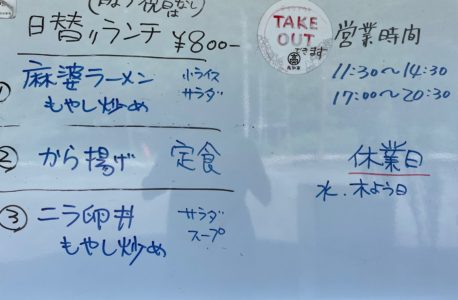 日替リランチ ¥800-
① 麻婆ラーメン 小ライス
もやし炒め サラダ
② から揚げ 定食
③ ニラ卵丼 サラダ
もやし炒め スープ
TAKE
OUT
できます
営業時間
11:30〜14:30
17:00〜20:30
休業日
水.木よう日